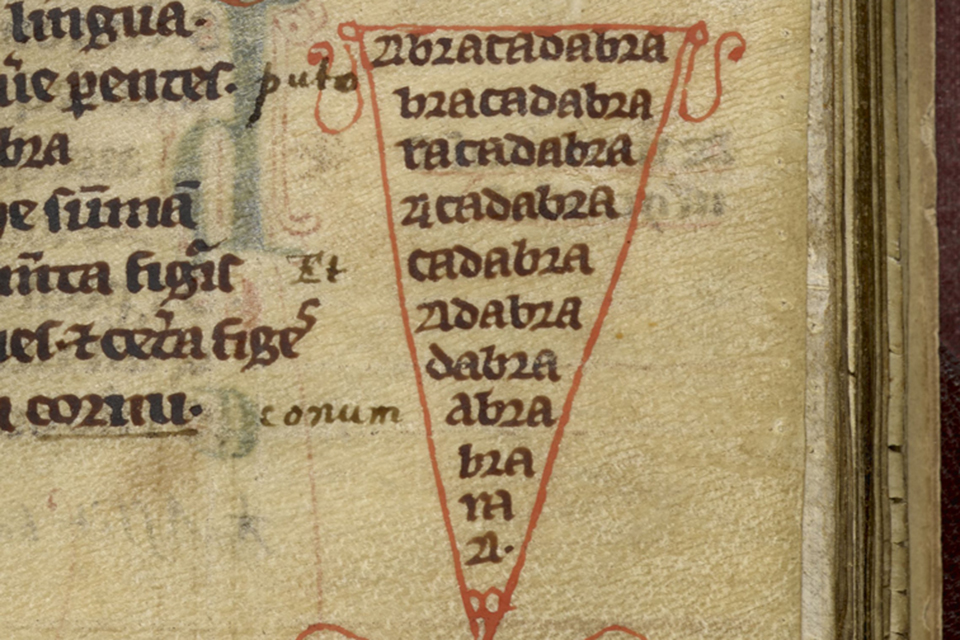 lingua.
ūie pentes. puto
bra
e sūmā
cta figis Et
ues. ⁊ cetа fige s
cornu. conum
Abracadabra
bracadabra
racadabra
Acadabra
cadabra
Adabra
dabra
Abra
bra
ra
A.